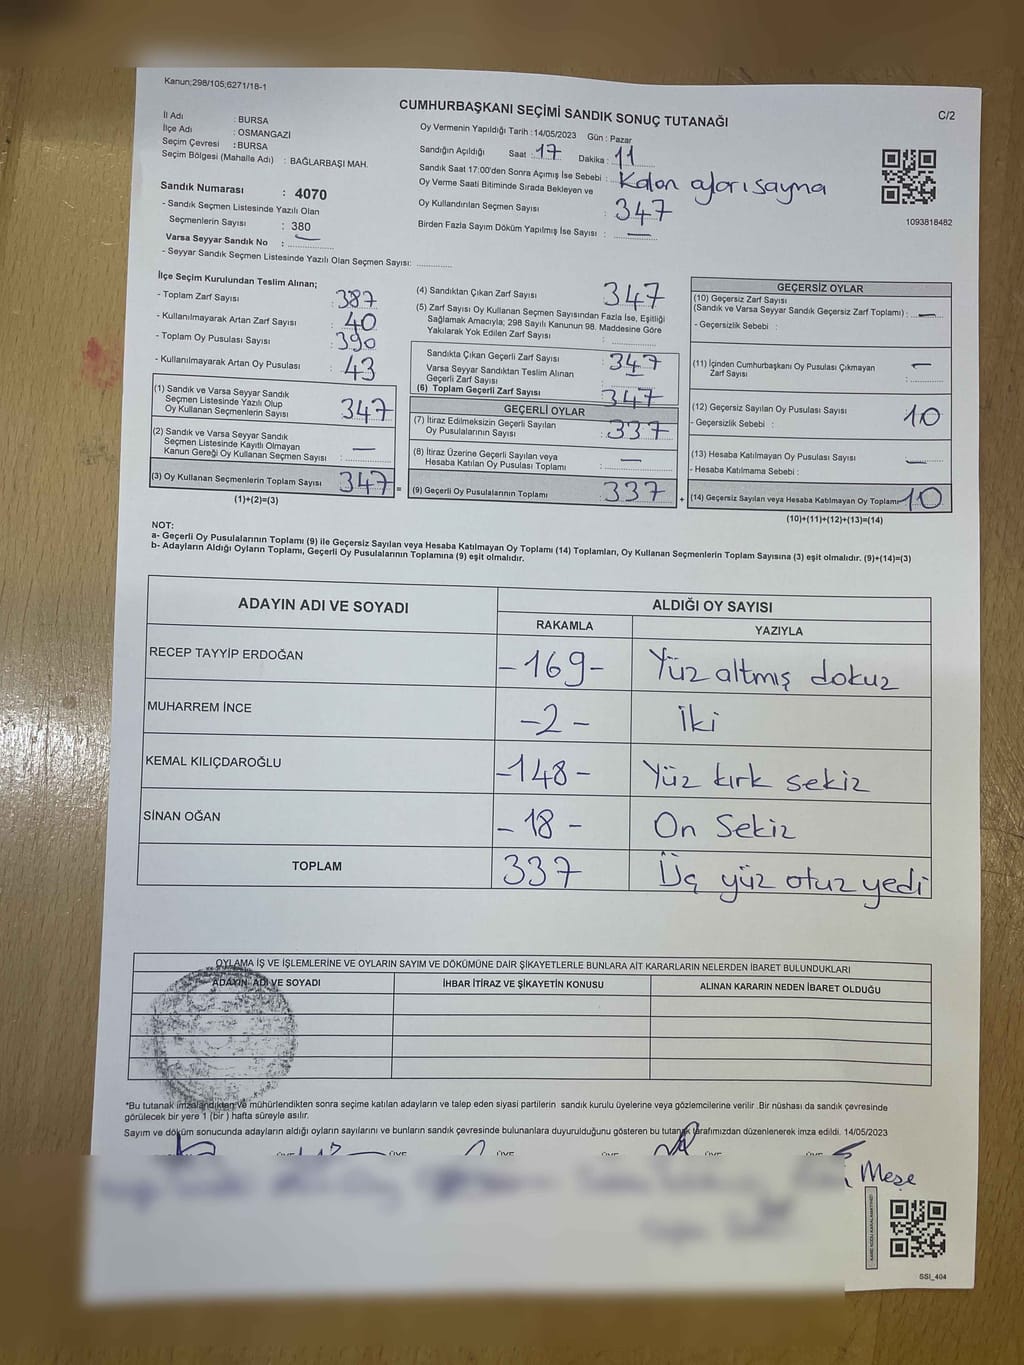 Kanun;298/105;6271/18-1
CUMHURBAŞKANI SEÇİMİ SANDIK SONUÇ TUTANAĞI
C/2
İl Adı : BURSA
İlçe Adı : OSMANGAZİ
Seçim Çevresi : BURSA
Seçim Bölgesi (Mahalle Adı) : BAĞLARBAŞI MAH.
Sandık Numarası : 4070
- Sandık Seçmen Listesinde Yazılı Olan
Seçmenlerin Sayısı : 380
Varsa Seyyar Sandık No : —
- Seyyar Sandık Seçmen Listesinde Yazılı Olan Seçmen Sayısı: ............
Oy Vermenin Yapıldığı Tarih :14/05/2023 Gün : Pazar
Sandığın Açıldığı Saat : 17 Dakika : 11
Sandık Saat 17:00'den Sonra Açımış İse Sebebi : Kalan ayları sayma
Oy Verme Saati Bitiminde Sırada Bekleyen ve
Oy Kullandırılan Seçmen Sayısı : 347
Birden Fazla Sayım Döküm Yapılmış İse Sayısı : —
1093818482
İlçe Seçim Kurulundan Teslim Alınan;
- Toplam Zarf Sayısı : 387
- Kullanılmayarak Artan Zarf Sayısı : 40
- Toplam Oy Pusulası Sayısı : 390
- Kullanılmayarak Artan Oy Pusulası : 43
(1) Sandık ve Varsa Seyyar Sandık
Seçmen Listesinde Yazılı Olup
Oy Kullanan Seçmenlerin Sayısı : 347
(2) Sandık ve Varsa Seyyar Sandık
Seçmen Listesinde Kayıtlı Olmayan
Kanun Gereği Oy Kullanan Seçmen Sayısı : —
(3) Oy Kullanan Seçmenlerin Toplam Sayısı : 347 =
(1)+(2)=(3)
(4) Sandıktan Çıkan Zarf Sayısı 347
(5) Zarf Sayısı Oy Kullanan Seçmen Sayısından Fazla İse, Eşitliği
Sağlamak Amacıyla; 298 Sayılı Kanunun 98. Maddesine Göre
Yakılarak Yok Edilen Zarf Sayısı : ............
Sandıkta Çıkan Geçerli Zarf Sayısı : 347
Varsa Seyyar Sandıktan Teslim Alınan
Geçerli Zarf Sayısı : —
(6) Toplam Geçerli Zarf Sayısı : 347
GEÇERLİ OYLAR
(7) İtiraz Edilmeksizin Geçerli Sayılan
Oy Pusulalarının Sayısı : 337
(8) İtiraz Üzerine Geçerli Sayılan veya
Hesaba Katılan Oy Pusulası Toplamı : —
(9) Geçerli Oy Pusulalarının Toplamı : 337 +
GEÇERSİZ OYLAR
(10) Geçersiz Zarf Sayısı
(Sandık ve Varsa Seyyar Sandık Geçersiz Zarf Toplamı) : —
- Geçersizlik Sebebi :
(11) İçinden Cumhurbaşkanı Oy Pusulası Çıkmayan
Zarf Sayısı : —
(12) Geçersiz Sayılan Oy Pusulası Sayısı 10
- Geçersizlik Sebebi :
(13) Hesaba Katılmayan Oy Pusulası Sayısı : —
- Hesaba Katılmama Sebebi :
(14) Geçersiz Sayılan veya Hesaba Katılmayan Oy Toplamı 10
(10)+(11)+(12)+(13)=(14)
NOT:
a- Geçerli Oy Pusulalarının Toplamı (9) ile Geçersiz Sayılan veya Hesaba Katılmayan Oy Toplamı (14) Toplamları, Oy Kullanan Seçmenlerin Toplam Sayısına (3) eşit olmalıdır. (9)+(14)=(3)
b- Adayların Aldığı Oyların Toplamı, Geçerli Oy Pusulalarının Toplamına (9) eşit olmalıdır.
ADAYIN ADI VE SOYADI
ALDIĞI OY SAYISI
RAKAMLA YAZIYLA
RECEP TAYYİP ERDOĞAN -169- Yüz altmış dokuz
MUHARREM İNCE -2- İki
KEMAL KILIÇDAROĞLU -148- Yüz kırk sekiz
SİNAN OĞAN -18- On Sekiz
TOPLAM 337 Üç yüz otuz yedi
OYLAMA İŞ VE İŞLEMLERİNE VE OYLARIN SAYIM VE DÖKÜMÜNE DAİR ŞİKAYETLERLE BUNLARA AİT KARARLARIN NELERDEN İBARET BULUNDUKLARI
ADAYIN ADI VE SOYADI İHBAR İTİRAZ VE ŞİKAYETİN KONUSU ALINAN KARARIN NEDEN İBARET OLDUĞU
*Bu tutanak imzalandıktan ve mühürlendikten sonra seçime katılan adayların ve talep eden siyasi partilerin sandık kurulu üyelerine veya gözlemcilerine verilir .Bir nüshası da sandık çevresinde
görülecek bir yere 1 (bir ) hafta süreyle asılır.
Sayım ve döküm sonucunda adayların aldığı oyların sayılarını ve bunların sandık çevresinde bulunanlara duyurulduğunu gösteren bu tutanak tarafımızdan düzenlenerek imza edildi. 14/05/2023
Meşe
SSI_404